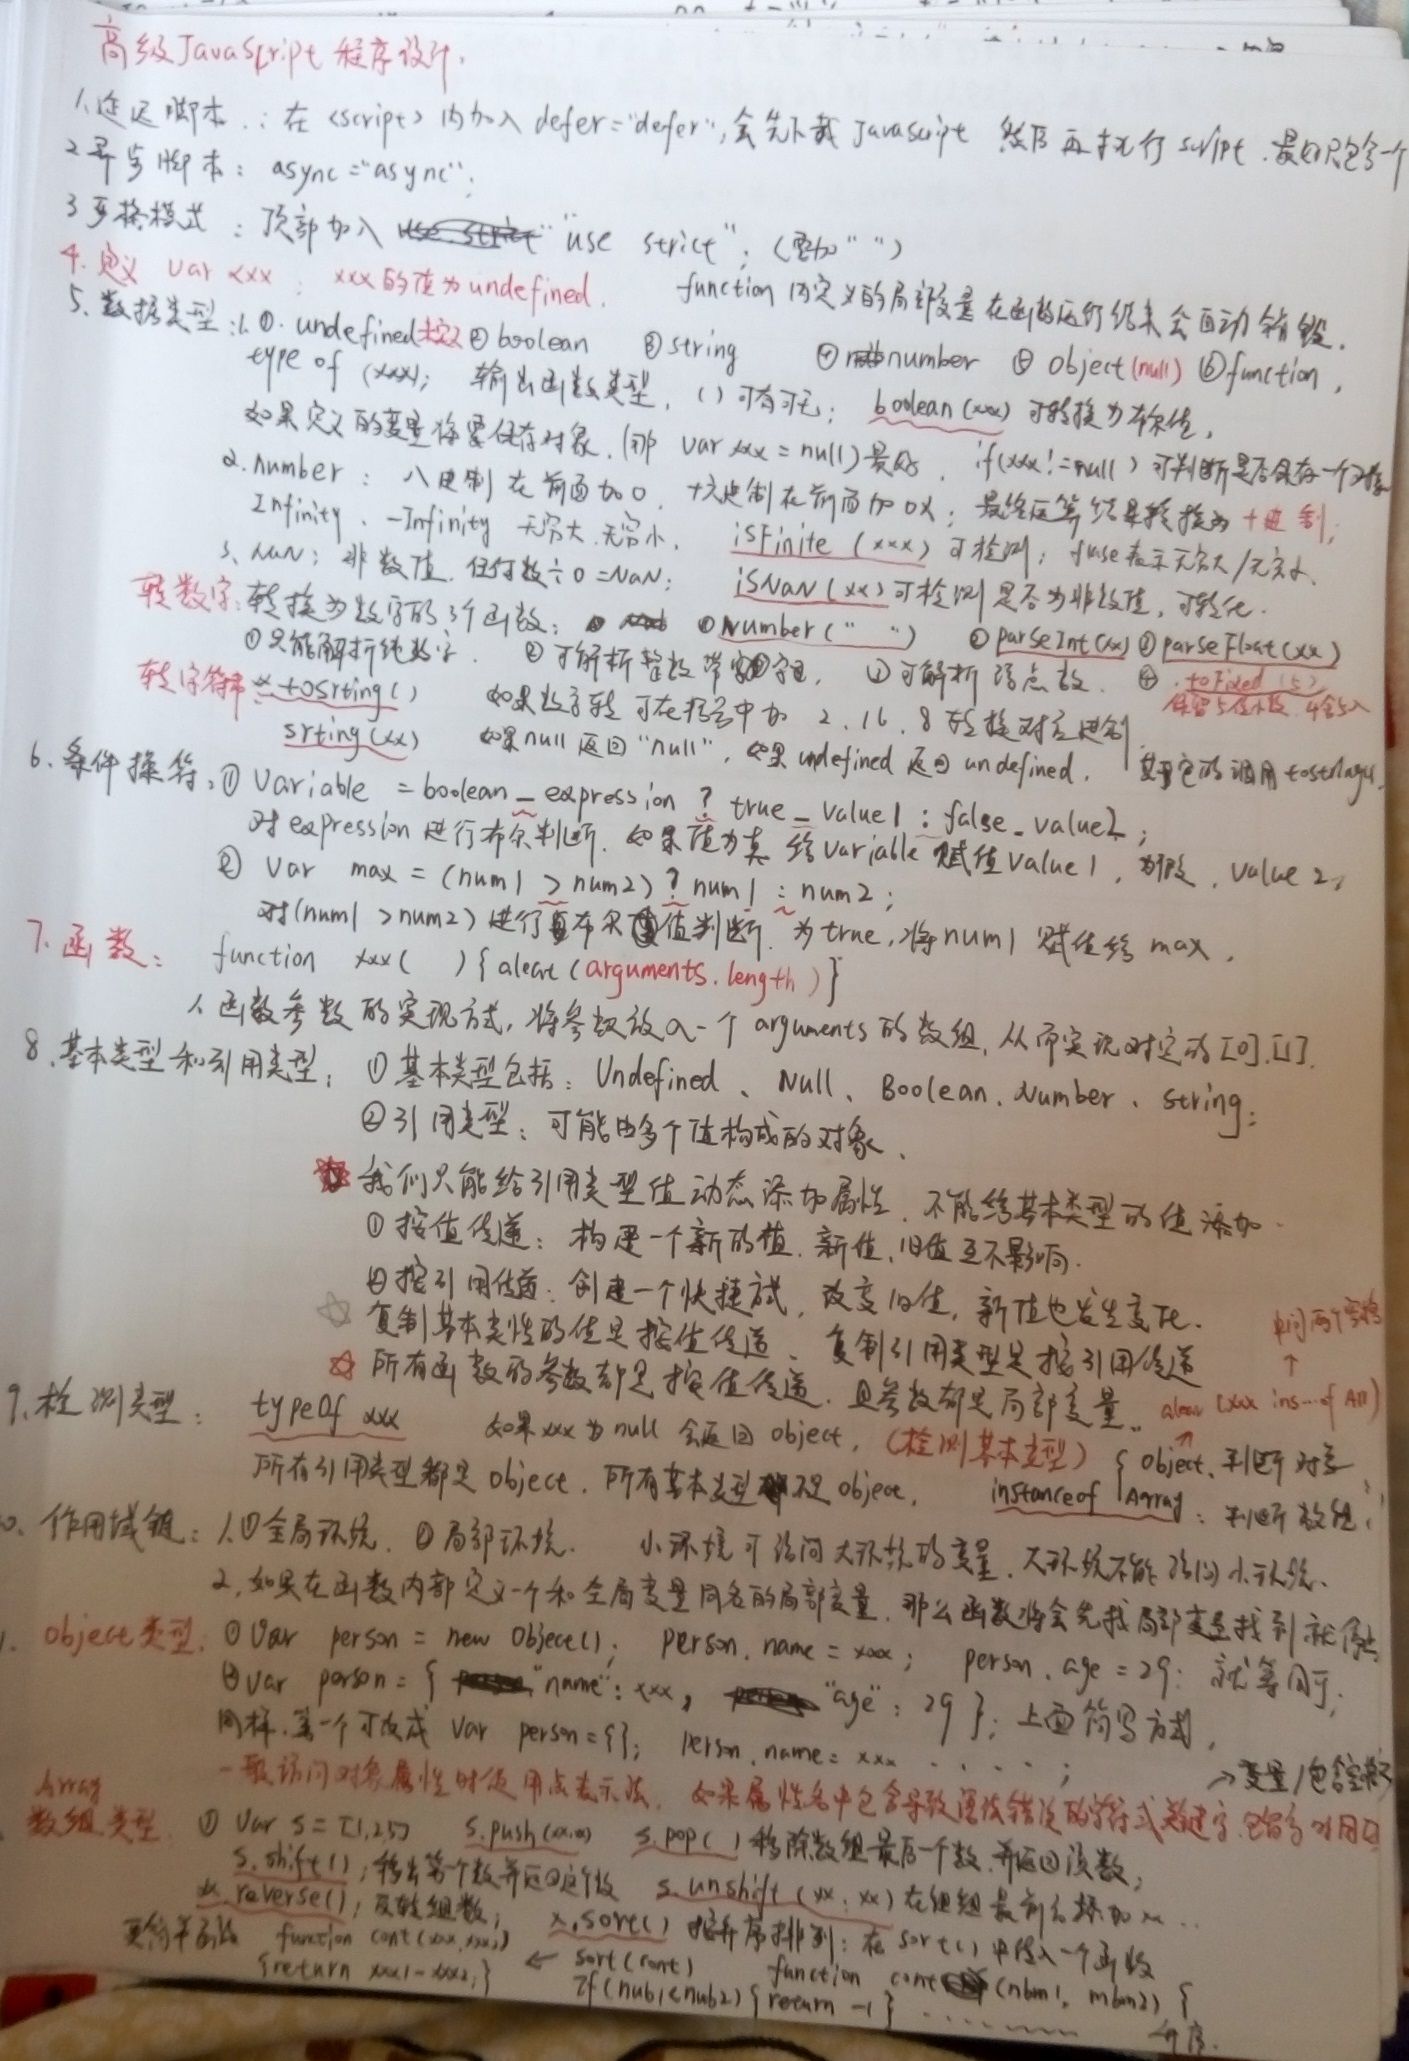 高级JavaScript程序设计.
1.延迟脚本.: 在<script>内加入defer="defer",会先下载Javascript 然后再执行script.最好只包含一个
2异步脚本: async="async";
3严格模式: 顶部加入 "use strict"; (要加" ")
4.定义 var xxx : xxx的值为undefined. function内定义的局部变量在函数运行结束会自动销毁.
5.数据类型:1.①.undefined未定义 ②boolean ③string ④number ⑤object(null) ⑥function,
type of (xxx); 输出函数类型.()可有可无; boolean(xxx)可转换为布尔值,
如果定义的变量将要保存对象.(那 var xxx=null)最好. if(xxx!=null)可判断是否保存一个对象
2.number: 八进制在前面加0. 十六进制在前面加0X; 最终运算结果转换为十进制;
Infinity.-Infinity 无穷大.无穷小. isFinite (xxx)可检测; false表示无穷大/无穷小.
3.NaN: 非数值.任何数÷0=NaN; isNaN(xx)可检测是否为非数值,可转化.
转数字:转换为数字的3个函数: ①Number(" ") ②parseInt(xx) ③parseFloat(xx)
①只能解析纯数字. ②可解析整数带字母. ③可解析浮点数. ④.toFixed(5)
保留5位小数.4舍5入
转字符串 x.tosrting() 如果数字转可在括号中加2.16.8转换对应进制
srting(xx) 如果null返回"null",如果undefined返回undefined. 其它的调用tostring().
6.条件操符:①Variable =boolean_expression ? true_value1 : false_value2;
对expression进行布尔判断.如果值为真 给variable赋值value1,为假.value2;
② Var max=(num1 >num2)?num1:num2;
对(num1 >num2)进行布尔值判断.为true,将num1赋值给max.
7.函数: function xxx( ){aleart(arguments.length)}
1.函数参数的实现方式,将参数放入一个arguments的数组,从而实现对应的[0].[1].
8.基本类型和引用类型: ①基本类型包括: Undefined、Null、Boolean.Number、string;
②引用类型:可能由多个值构成的对象.
我们只能给引用类型值动态添加属性.不能给基本类型的值添加.
①按值传递: 构建一个新的值.新值,旧值互不影响.
②按引用传递: 创建一个快捷方式,改变旧值,新值也发生变化.
复制基本类性的值是按值传递、复制引用类型是按引用传递
中间两个空格
所有函数的参数都是按值传递.且参数都是局部变量. alear(xxx ins...of Arr)
9.检测类型: typeof xxx 如果xxx为null会返回object.(检测基本类型) {object.判断对象
所有引用类型都是object.所有基本类型不是object. instanceof Array:判断数组
0.作用域链:1.①全局环境.②局部环境. 小环境可访问大环境的变量.大环境不能访问小环境.
2.如果在函数内部定义一个和全局变量同名的局部变量.那么函数将会先找局部变量找到就停止
object类型.①Var person=new Object(); person.name=xxx; person.age=29: 就等同于;
②var person={ "name":xxx, "age":29}; 上面简写方式,
同样.第一个可改成 var person={}; person.name=xxx .....;
→变量/包含空格
一般访问对象属性时使用点表示法. 如果属性名中包含导致语法错误的字符或关键字.
Array
数组类型 ① Var s=[1,25] s.push(xx,xx) s.pop()移除数组最后一个数.并返回该数;
s.shift();移出第一个数并返回这个数 s.unshift(xx.xx)在组组最前方添加xx..
x.reverse();反转组数; x.sort()按升序排列: 在sort()中传入一个函数
更简单函数 function cont(xxx,xxx2) ← sort(cont) function cont (nbm1, mbm2) {
{return xxx1-xxx2;} If(nub1<nub2){return -1} ........ 升序.